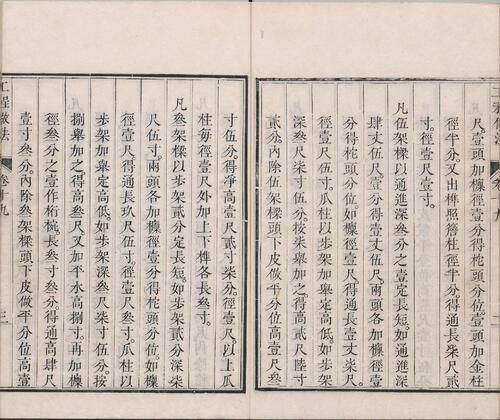 尺。壹頭加檁徑壹分得柁頭分位。壹頭加金柱
徑半分。又出榫照簷柱徑半分。得通長柒尺貳
寸。徑壹尺壹寸。
凡伍架樑以通進深叁分之壹定長短。如通進深
肆丈伍尺。壹分得壹丈伍尺。兩頭各加檁徑壹
分得柁頭分位。如檁徑壹尺。得通長壹丈柒尺。
徑壹尺伍寸。瓜柱以步架加舉定高低。如步架
深叁尺柒寸伍分。按柒舉加之。得高貳尺陸寸
貳分。內除伍架樑頭下皮做平分位高壹尺叁
寸伍分。得淨高壹尺貳寸柒分。徑壹尺。以上瓜
柱每徑壹尺。外加上下榫各長叁寸。
凡叁架樑以步架貳分定長短。如步架貳分深柒
尺伍寸。兩頭各加檁徑壹分得柁頭分位。如檁
徑壹尺。得通長玖尺伍寸。徑壹尺叁寸。瓜柱以
步架加舉定高低。如步架深叁尺柒寸伍分。按
捌舉加之。得高叁尺。又加平水高捌寸。再加檁
徑叁分之壹作桁椀。長叁寸叁分。得通高肆尺
壹寸叁分。內除叁架樑頭下皮做平分位高壹
工程做法 卷十九 三